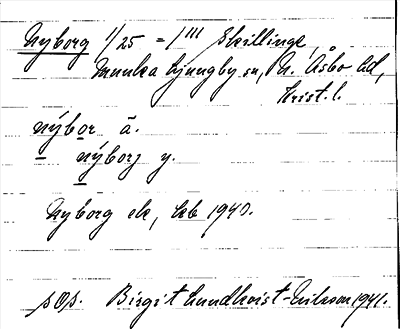 Nyborg 1/25 = /III Skillinge,
Munka Ljungby sn, N. Åsbo hd,
Krist. l.
nýbor ä.
nýborj y.
Nyborg ek, kb 1940.
sOs. Birgit Lundkvist-Nilsson 1941.